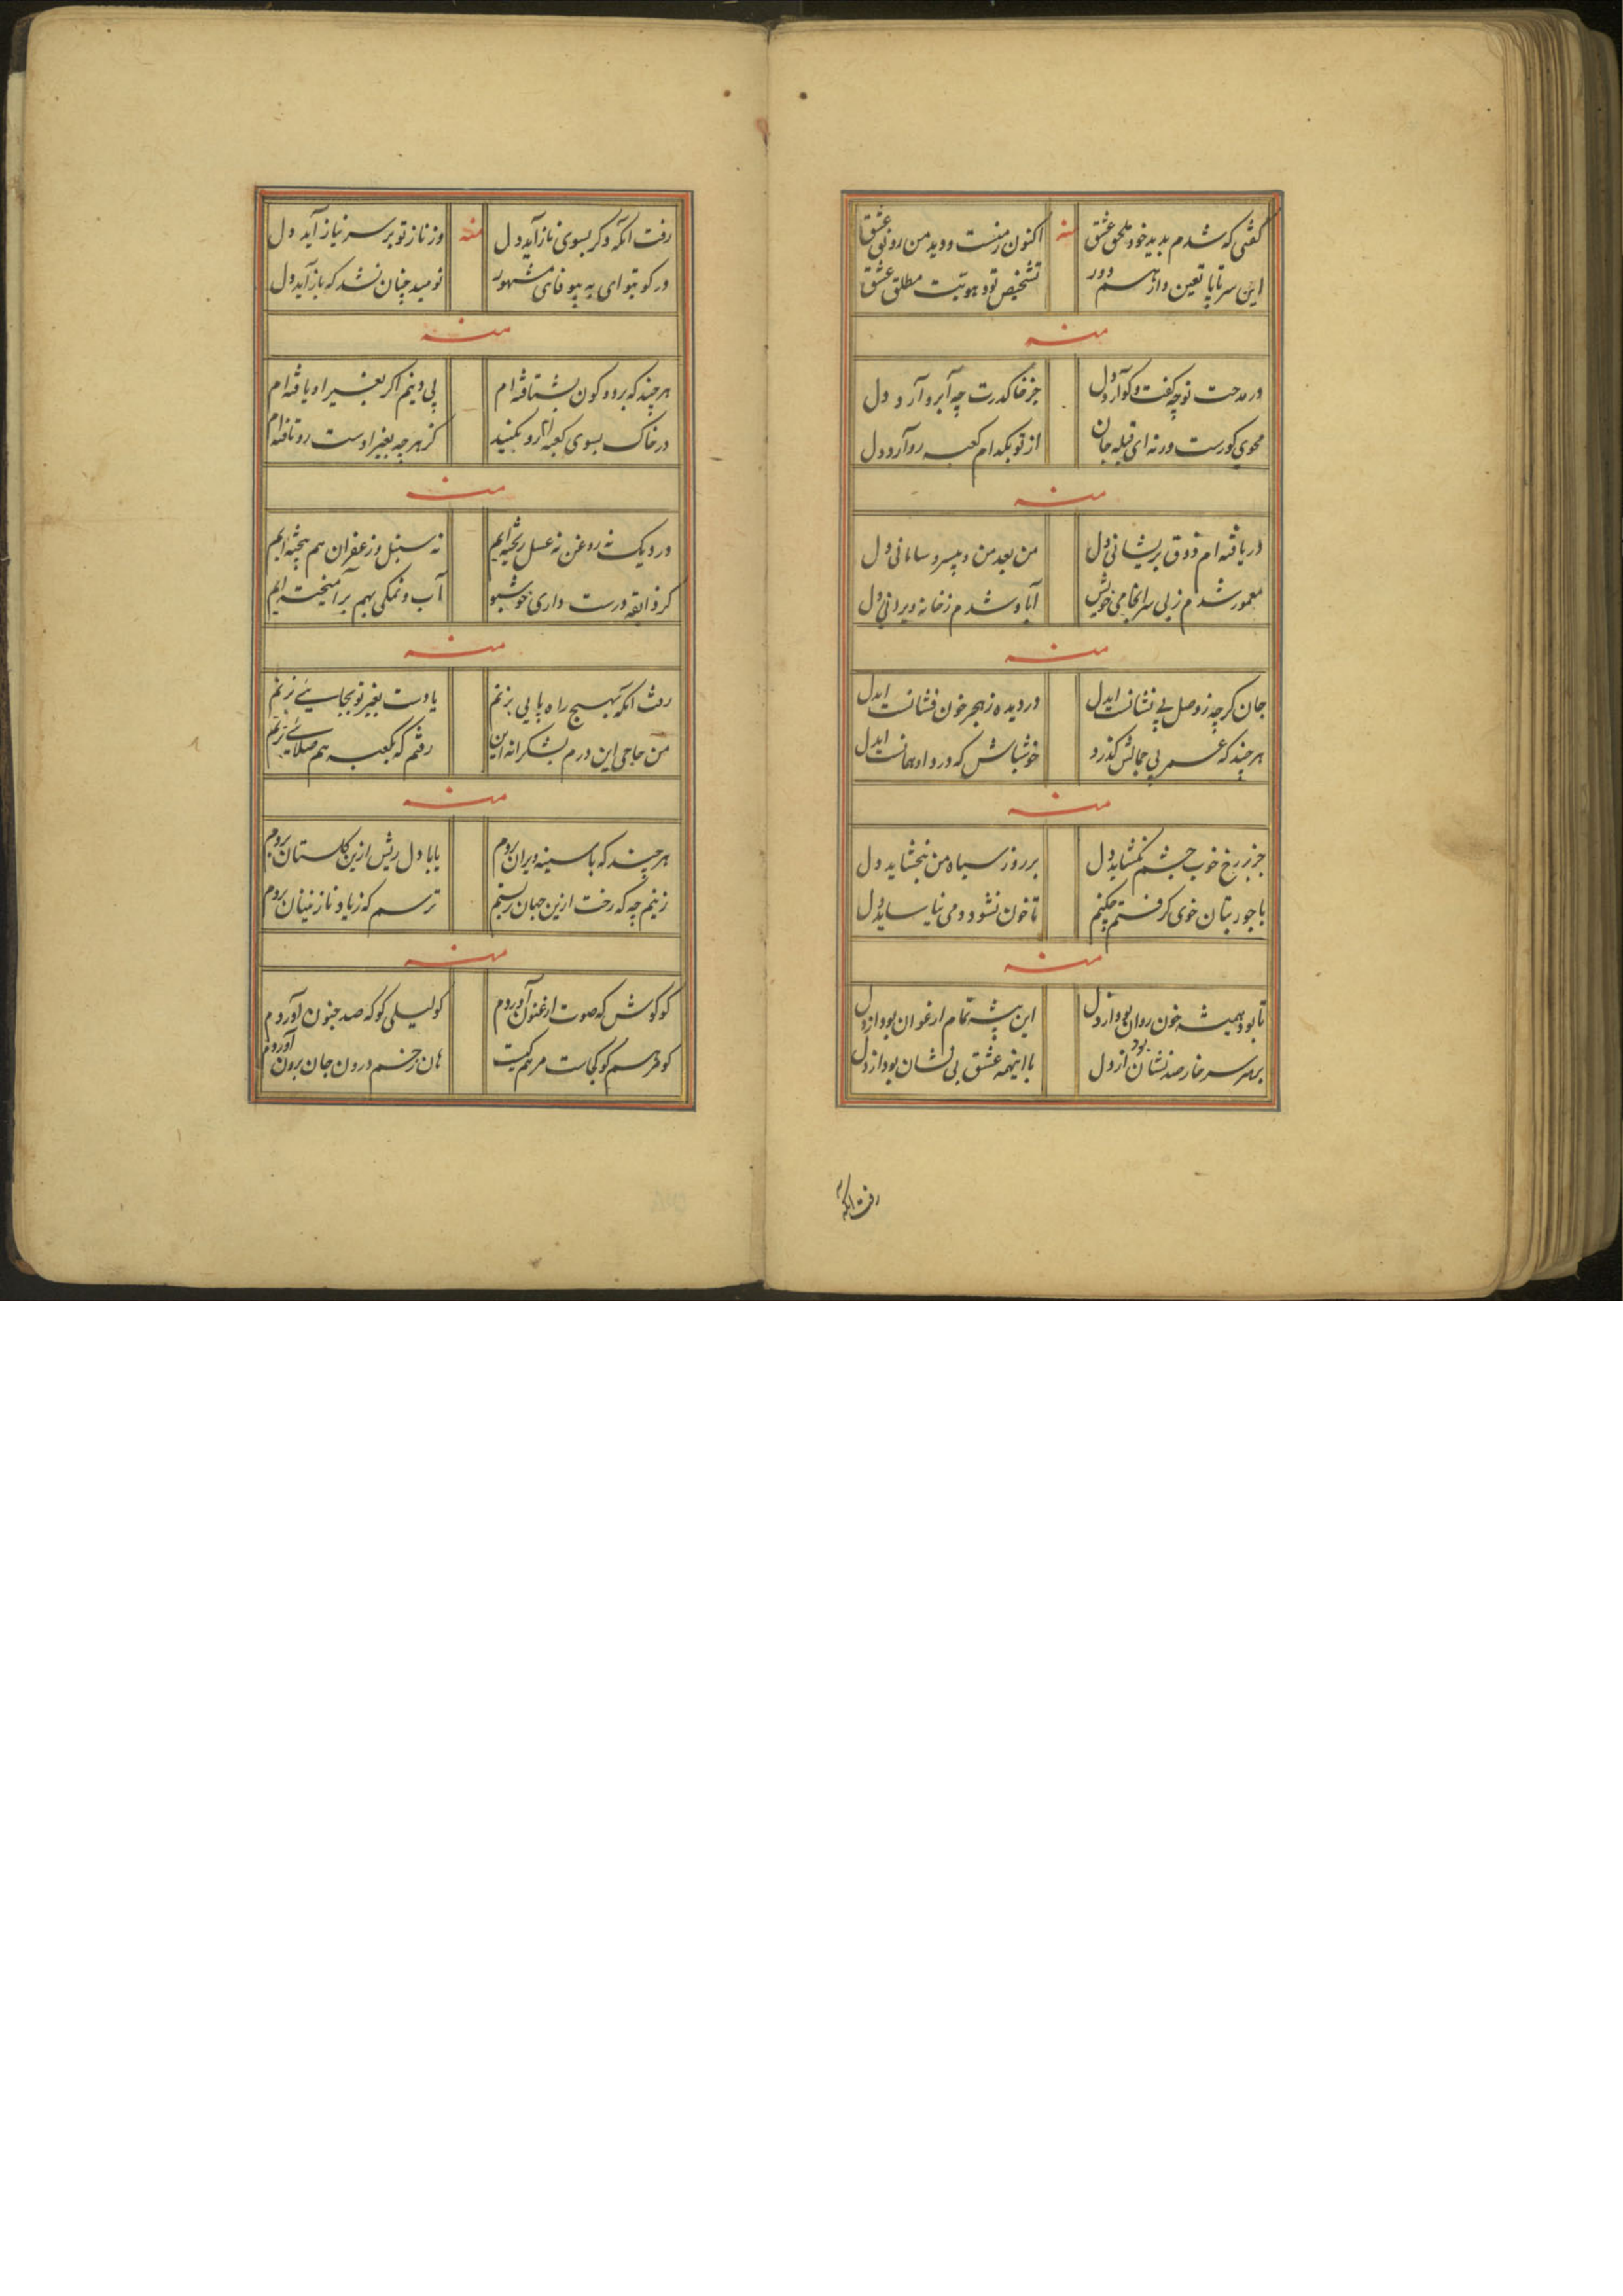 گفتی که شدم بدید خود ملحق عشق
منه
اکنون ز منست و دید من رونق عشق
این سر تا پا تعین و از هم دور
تشخیص تو و هویت مطلق عشق
منه
در مدحت تو چه گفت و گو آرد دل
جز خاک درت چه آبرو آرد دل
محوی کورست ورنه ای قبله جان
از تو بکدام کعبه رو آرد دل
منه
دریافته‌ام ذوق پریشانی دل
من بعد من و بیسر و سامانی دل
معمور شدم ز بی سرانجامی خویش
آباد شدم ز خانه ویرانی دل
منه
جان گرچه ز وصل بی نشانست ایدل
در دیده ز هجر خون فشانست ایدل
هر چند که عمر بی جمالش گذرد
خوشباش که درد او همانست ایدل
منه
جز بر رخ خوب چشم نگشاید دل
بر روز سیاه من نبخشاید دل
با جور بتان خوی گرفتم چکنم
تا خون نشود دمی نیاساید دل
منه
تا بود همیشه خون روان بود از دل
این بیشه تمام ارغوان بود از دل
بر هر سر خار صد نشان بود از دل
با اینهمه عشق بی نشان بود از دل
رفت انکه
رفت آنکه دگر بسوی ناز آید دل
منه
وز ناز تو بر سر نیاز آید دل
در کوی تو ای به بیوفای مشهور
نومید چنان نشد که باز آید دل
منه
هر چند که بر دو کون بشتافته‌ام
بی دینم اگر بغیر او یافته‌ام
در خاک بسوی کعبه‌ام رو مکنید
کز هر چه بغیر اوست رو تافته‌ام
منه
در دیک نه روغن نه عسل ریخته‌ایم
نه سنبل و زعفران بهم بیخته‌ایم
گر ذایقه درست داری خوش شو
آب و نمکی بهم بر آمیخته‌ایم
منه
رفت انکه بهیچ راه پایی بزنم
یا دست بغیر تو بجایی بزنم
من حاجی این درم بشکرانه این
رفتم که بکعبه هم صلایی بزنم
منه
هر چند که با سینه ویران بروم
یا با دل ریش ازین گلستان بروم
زینم چه که رخت ازین جهان بستم
ترسم که ز یاد نازنینان بروم
منه
کو گوش که صوت ارغنون آوردم
کو لیلی کو که صد جنون آوردم
کو مرهم کو کجاست مرهم کیت
هان زخم درون جان برون آوردم